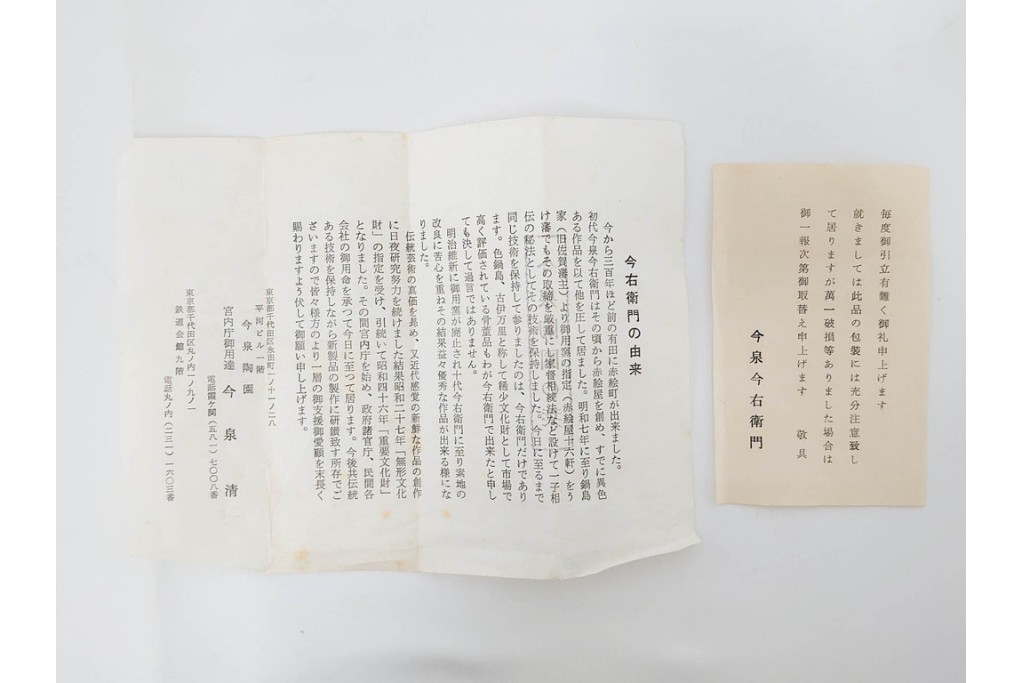 毎度御引立有難く御礼申上げます
就きましては此品の包装には充分注意致し
て居りますが萬一破損等ありました場合は
御一報次第御取替え申上げます　敬具
今泉今右衛門
今右衛門の由来
今から三百年ほど前の有田に赤絵町が出来ました。
初代今泉今右衛門はその頃から赤絵屋を創め、すでに異色
ある作品を以て他を圧して居ました。明和七年に至り鍋島
家（旧佐賀藩主）より御用窯の指定（赤絵屋十六軒）をう
け藩でもその取締を厳重にし家督相続法など設けて一子相
伝の秘法としてその技術を保持しました。今日に至るまで
同じ技術を保持して参りましたのは、今右衛門だけであり
ます。色鍋島、古伊万里と称して稀少文化財として市場で
高く評価されている骨董品もわが今右衛門で出来たと申し
ても決して過言ではありません。
明治維新に御用窯が廃止され十代今右衛門に至り素地の
改良に苦心を重ねその結果益々優秀な作品が出来る様にな
りました。
伝統芸術の真価を晃め、又近代感覚の新鮮な作品の創作
に日夜研究努力を続けました結果昭和二十七年「無形文化
財」の指定を受け、引続いて昭和四十六年「重要文化財」
となりました。その間宮内庁を始め、政府諸官庁、民間各
会社の御用命を承つて今日に至つて居ります。今後共伝統
ある技術を保持しながら新製品の製作に研鑚致す所存でご
ざいますので皆々様方のより一層の御支援御愛顧を末長く
賜わりますよう伏して御願い申し上げます。
東京都千代田区永田町一ノ十一ノ二八
平河ビル一階
今泉陶園
電話霞ケ関（五八一）七〇〇八番
宮内庁御用達　今泉清
東京都千代田区丸ノ内一ノ九ノ一
鉄道会館九階
電話丸ノ内（二三一）一六〇三番